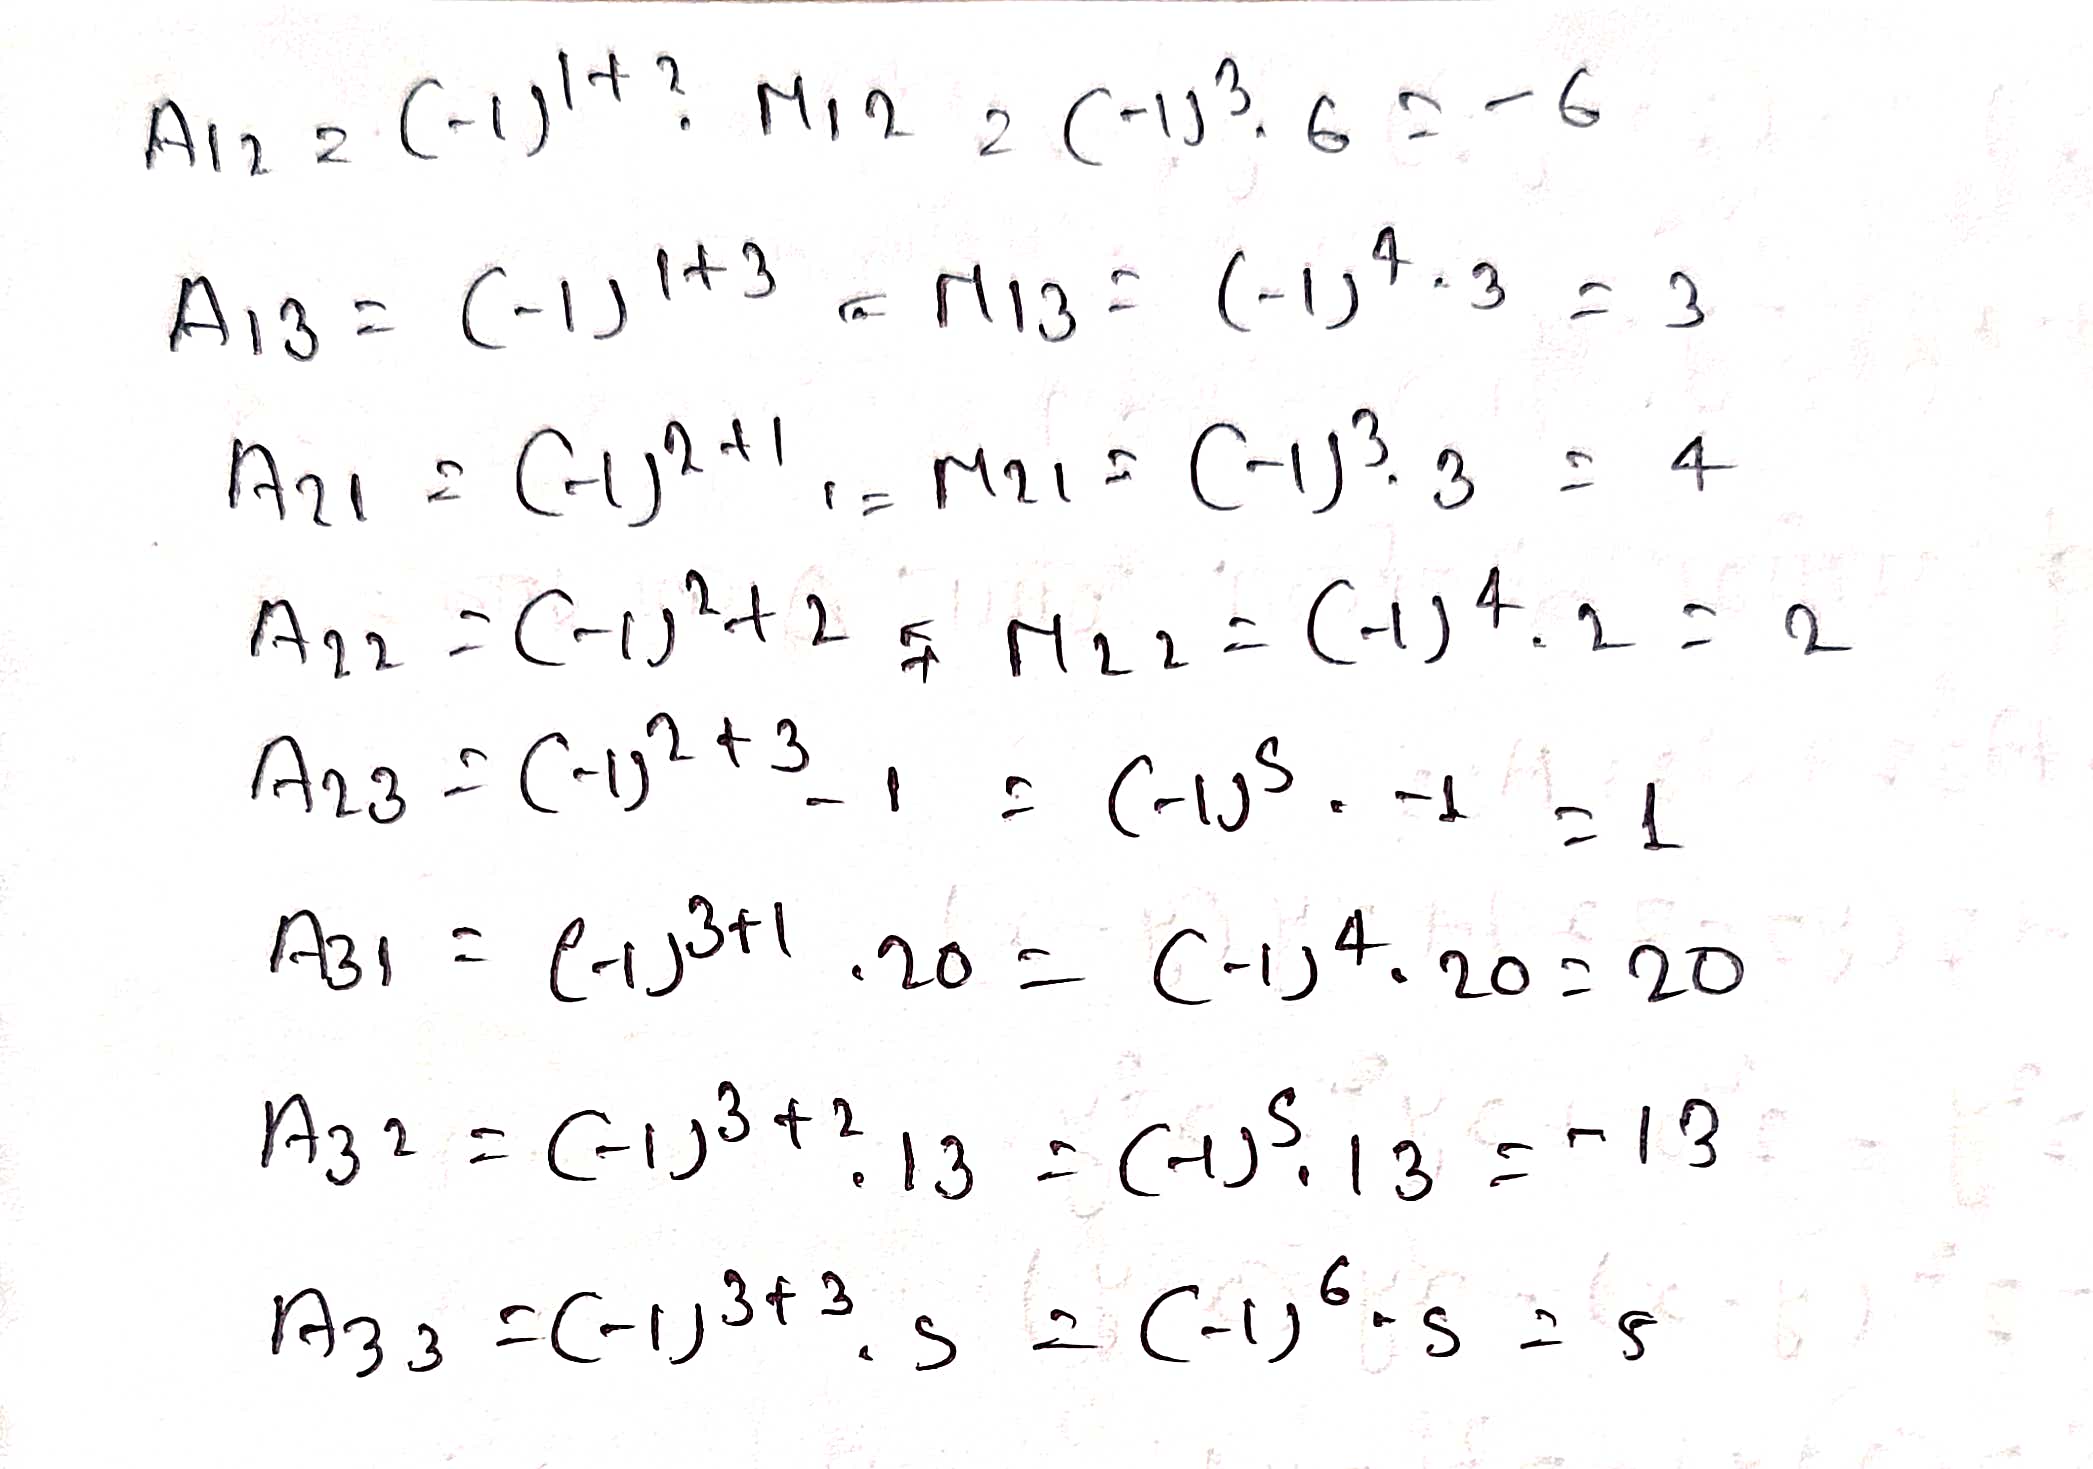 A12 = (-1)^1+2. M12 = (-1)^3. 6 = -6
A13 = (-1)^1+3 = M13 = (-1)^4. 3 = 3
A21 = (-1)^2+1. = M21 = (-1)^3. 3 = 4
A22 = (-1)^2+2 = M22 = (-1)^4. 2 = 2
A23 = (-1)^2+3 - 1 = (-1)^5. -1 = 1
A31 = (-1)^3+1 .20 = (-1)^4. 20 = 20
A32 = (-1)^3+2. 13 = (-1)^5. 13 = -13
A33 = (-1)^3+3. 5 = (-1)^6. 5 = 5